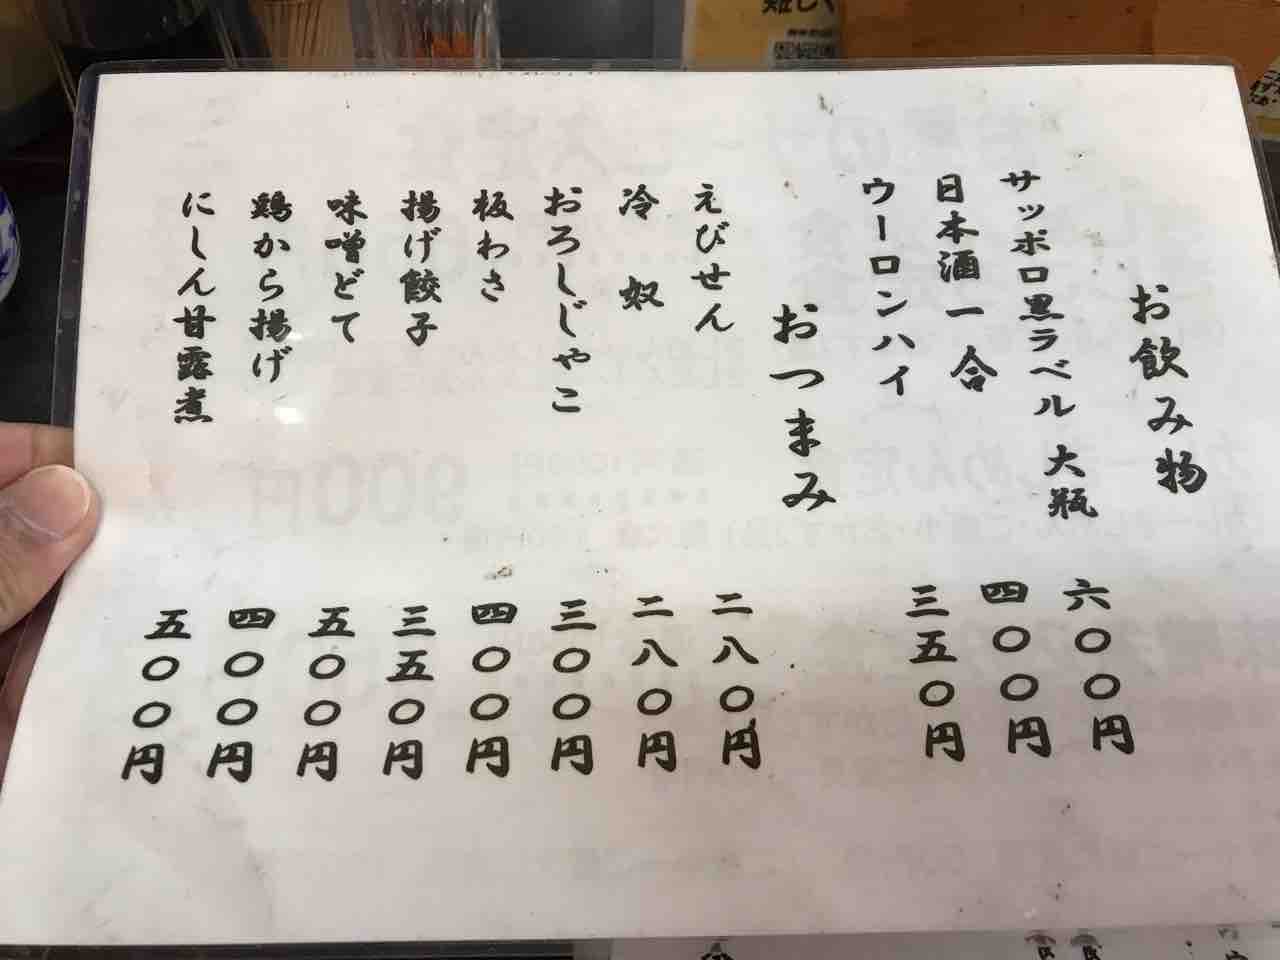 お飲み物
サッポロ黒ラベル 大瓶 六〇〇円
日本酒一合 四〇〇円
ウーロンハイ 三五〇円
おつまみ
えびせん 二八〇円
冷奴 二八〇円
おろしじゃこ 三〇〇円
板わさ 四〇〇円
揚げ餃子 三五〇円
味噌どて 五〇〇円
鶏から揚げ 四〇〇円
にしん甘露煮 五〇〇円